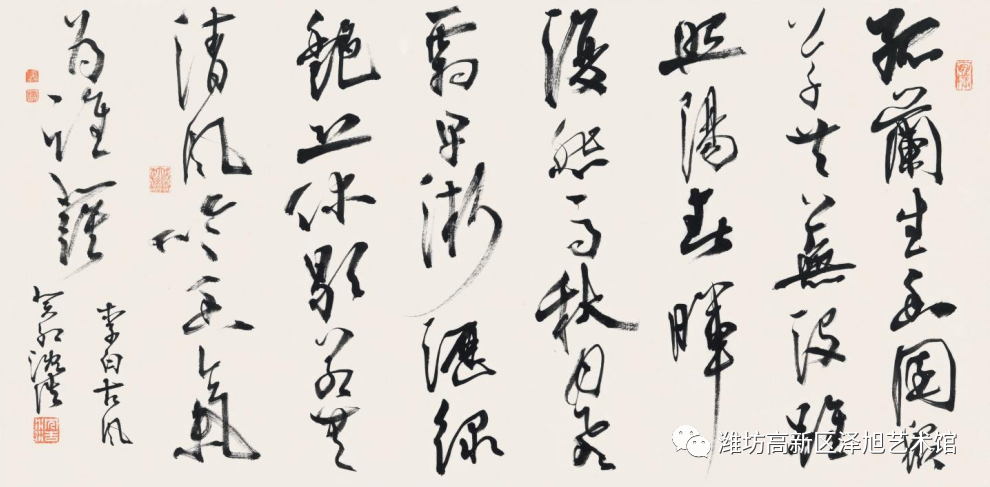 孤蘭生幽園眾
草共蕪没雖
照陽春暉
復悲高秋月飛
霜早淅瀝綠
艷恐休歇若無
清風吹香氣
為誰發
李白古風
癸卯
潍坊高新区泽旭艺术馆